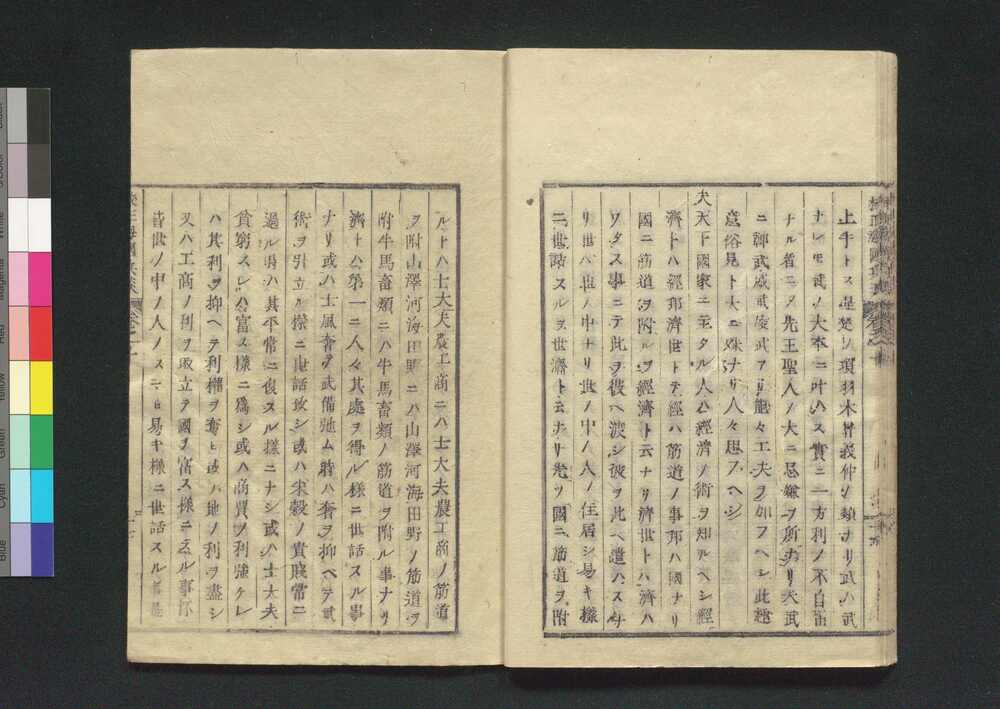 上手トス是楚ノ項羽木曾義仲ノ類ナリ武ハ武
ナレ𪜈武ノ大本ニ叶ハス實ニ一方利ノ不自由
ナル者ニメ先王聖人ノ大ニ忌嫌フ所ナリ夫武
ニ神武威武凌武アリ能々工夫ヲ加フヘシ此趣
意俗見ト大ニ殊ナリ人々思フヘシ
夫天下國家ニ主タル人ハ經濟ノ術ヲ知ルヘシ經
濟トハ經邦濟世トテ經ハ筋道ノ事邦ハ國ナリ
國ニ筋道ヲ附ルヲ經濟ト云ナリ濟世トハ濟ハ
ワタス事ニテ此ヲ彼ヘ渡シ彼ヲ此ヘ遣ハス
リ世ハ世ノ中ナリ世ノ中ノ人ノ住居シ易キ樣
ニ世話スルヲ世濟ト云ナリ先ツ國ニ筋道ヲ附
ルトハ士大夫農工商ニハ士大夫農工商ノ筋道
ヲ附山澤河海田野ニハ山澤河海田野ノ筋道ヲ
附牛馬畜類ニハ牛馬畜類ノ筋道ヲ附ル事ナリ
濟トハ第一ニ人々其處ヲ得ル樣ニ世話スル事
ナリ或ハ士風奢テ武備弛ム時ハ奢ヲ抑ヘテ武
術ヲ引立ル樣ニ世話致シ或ハ米穀ノ貴賤常ニ
過ル時ハ其平常ニ復スル樣ニナシ或ハ士大夫
貧窮スレハ富ス樣ニ爲シ或ハ商買ノ利強ケレ
ハ其利ヲ抑ヘテ利權ヲ奪ヒ或ハ地ノ利ヲ盡シ
又ハ工商ノ利ヲ取立テ國ヲ富ス樣ニスル事抔
皆世ノ中ノ人ノスミヨヒ易キ樣ニ世話スル